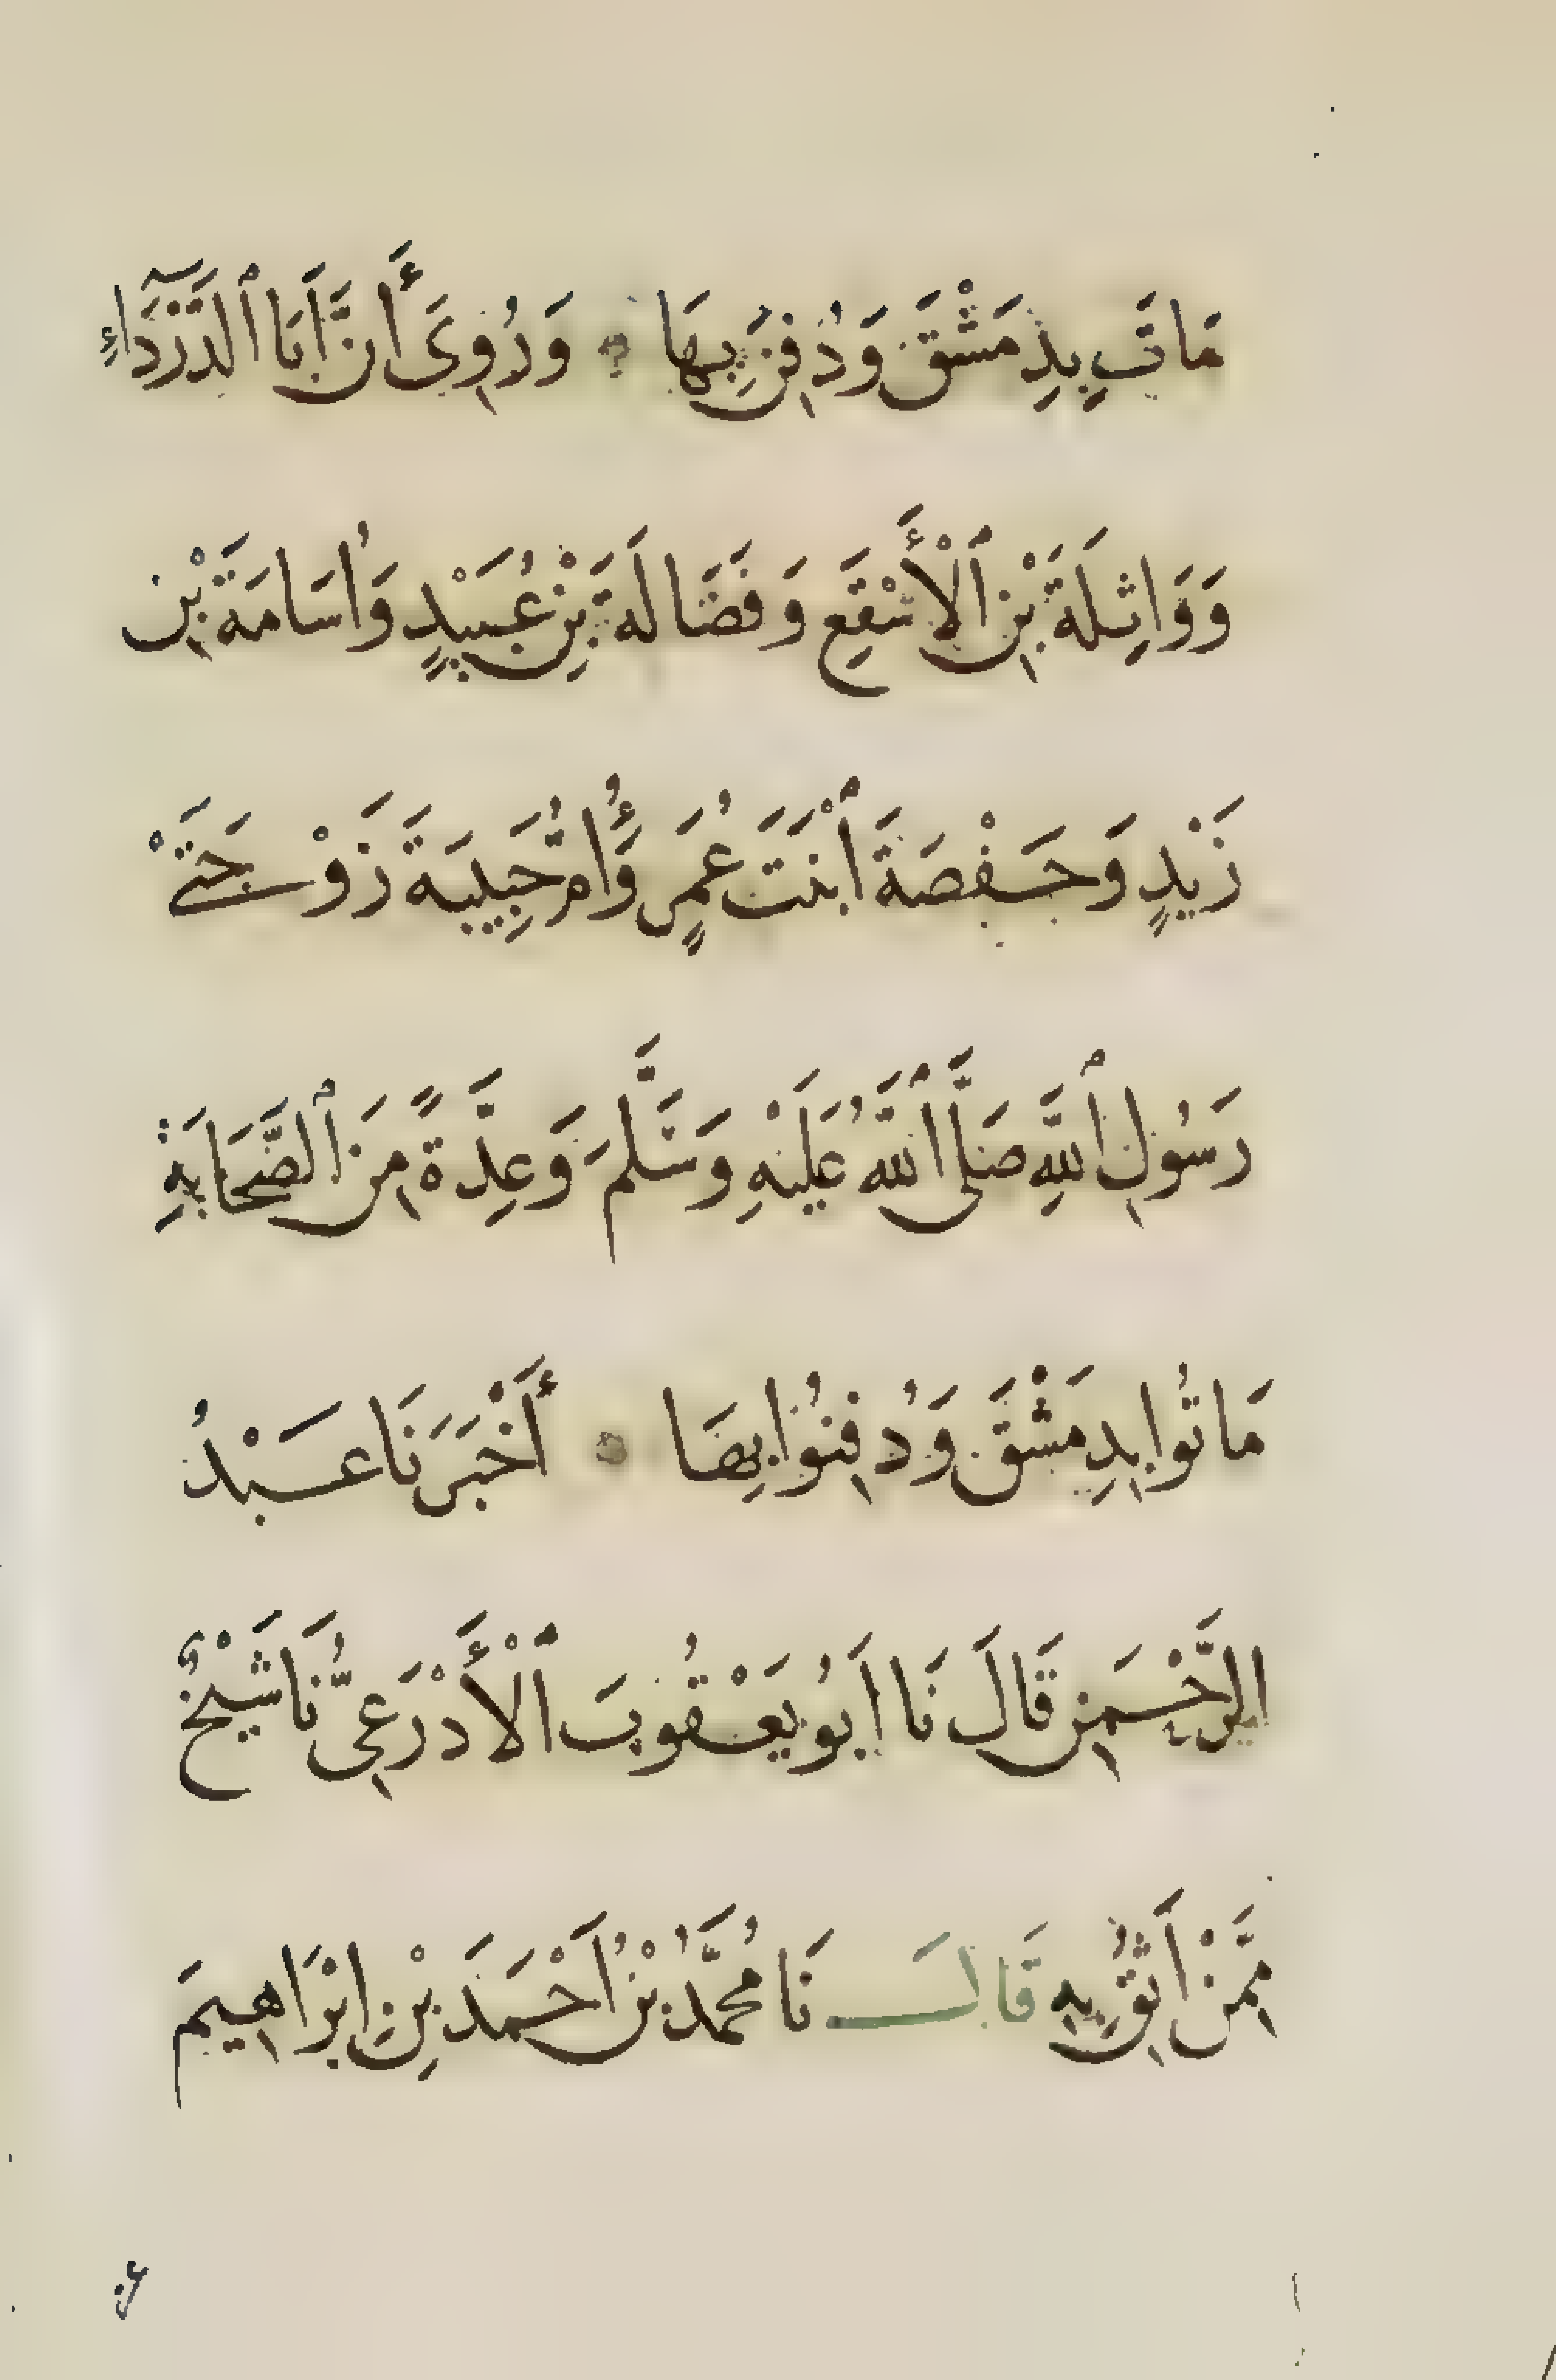 مَاتَ بِدِمَشْقَ وَدُفِنَ بِهَا وَرُوِىَ أَنَّ اَبَا ٱلدَّرْدَآءِ
وَوَاثِلَةَ بْنَ ٱلْأَسْقَعِ وَفَضَالَةَ بْنَ عُبَيْدٍ وَاُسَامَةَ بْنَ
زَيْدٍ وَحَفْصَةَ ٱبْنَتَ عُمَرٍ وَأُمَّ حَبِيبَةَ زَوْجَتَىْ
رَسُولِ ٱللَّهِ صَلَّى ٱللَّهُ عَلَيْهِ وَسَلَّمَ وَعِدَّةً مِنَ ٱلصَّحَابَةِ
مَاتُوا بِدِمَشْقَ وَدُفِنُوا بِهَا أَخْبَرَنَا عَبْدُ
الرَّحْمَنِ قَالَ نَا اَبُو يَعْقُوبَ ٱلْأَدْرَعِىُّ نَا شَيْخٌ
مِمَّنْ اَثِقُ بِهِ قَالَ نَا مُحَمَّدُ بْنُ اَحْمَدَ بْنِ اِبْرَاهِيمَ